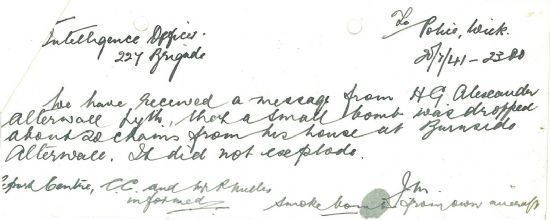 Intelligence Officer.
227 Brigade
To
Police, Wick.
20/7/41 - 2300
We have received a message from H.G. Alexander
Alterwall Lyth, that a small bomb was dropped
about 20 chains from his house at Burnside
Alterwall. It did not explode.
Centre, C.C. and
informed
Jm.
smoke bomb from own aircraft